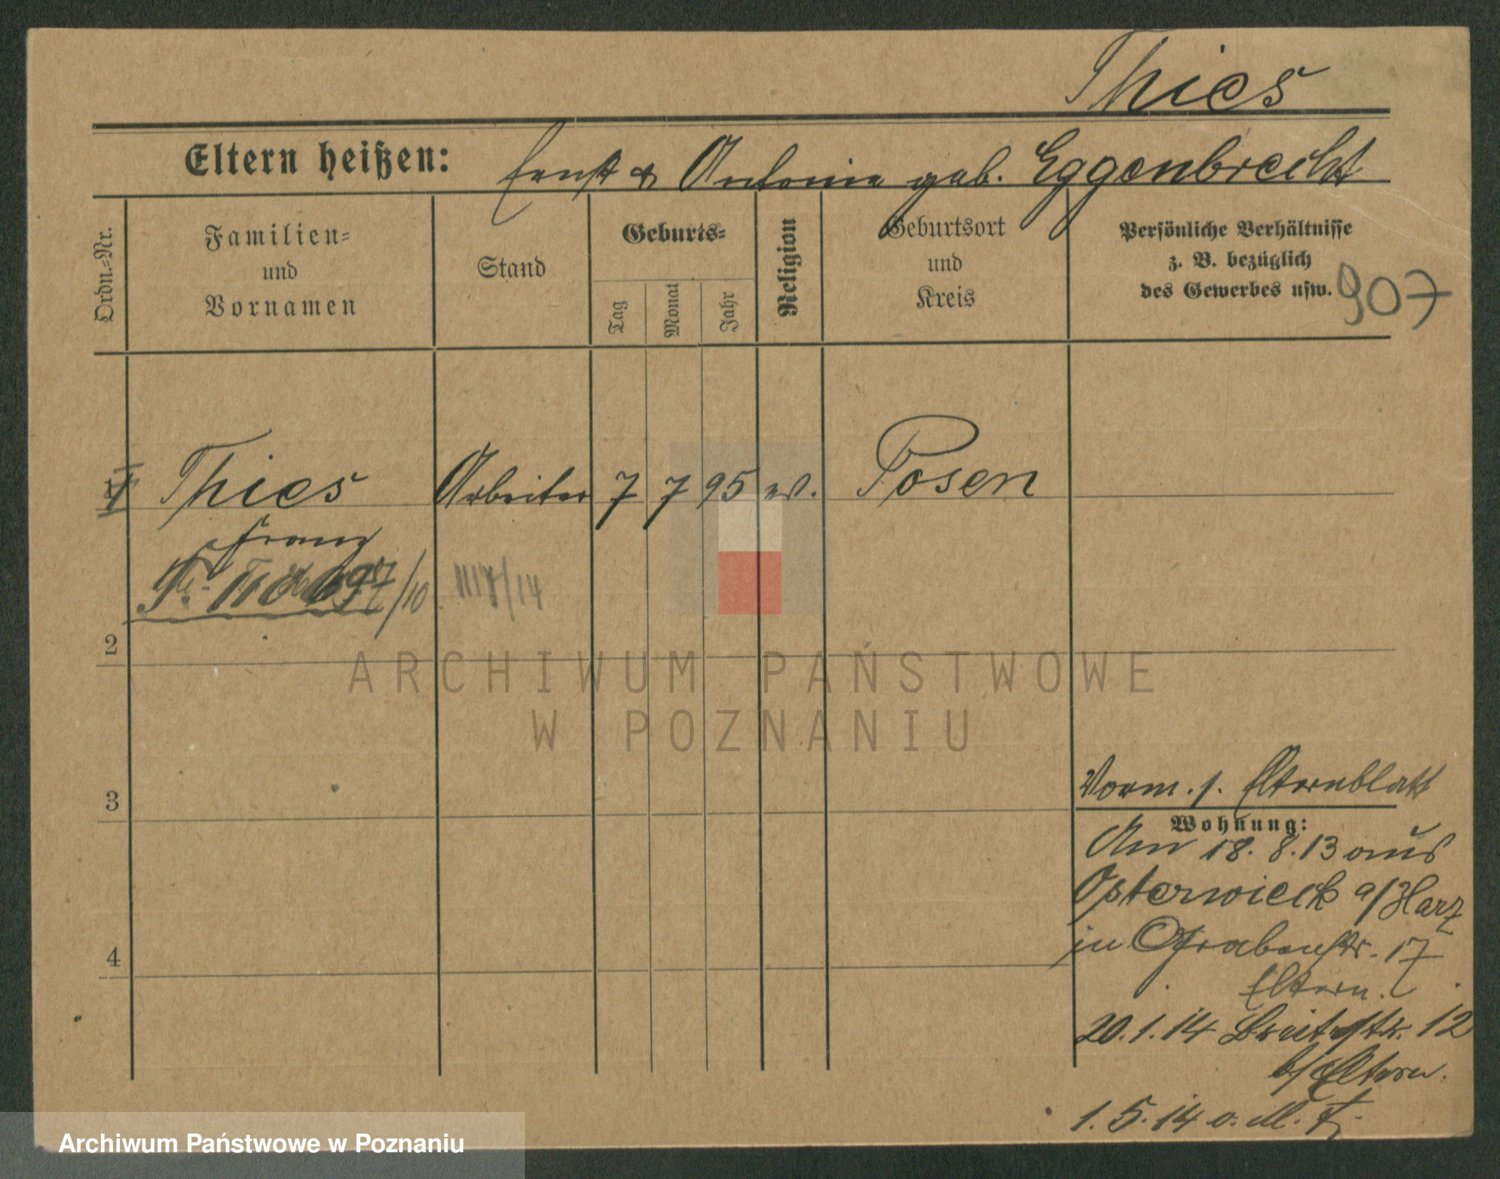 Thies
Eltern heißen: Ernst & Antonie geb. Eggenbrecht
Ordn.-Nr.
Familien-
und
Vornamen
Stand
Geburts-
Tag
Monat
Jahr
Religion
Geburtsort
und
Kreis
Persönliche Verhältnisse
z. B. bezüglich
des Gewerbes usw.
907
1 Thies Arbeiter 7 7 95 ev. Posen
Franz
2
3
4
ARCHIWUM PAŃSTWOWE
W POZNANIU
Vorm. s. Elternblatt
Wohnung:
Am 18. 8. 13 aus
Osterwieck a/Harz
in Grabenstr. 17
Eltern.
20. 1. 14 Breitestr. 12
b/Eltern.
1. 5. 14 o. M.
Archiwum Państwowe w Poznaniu